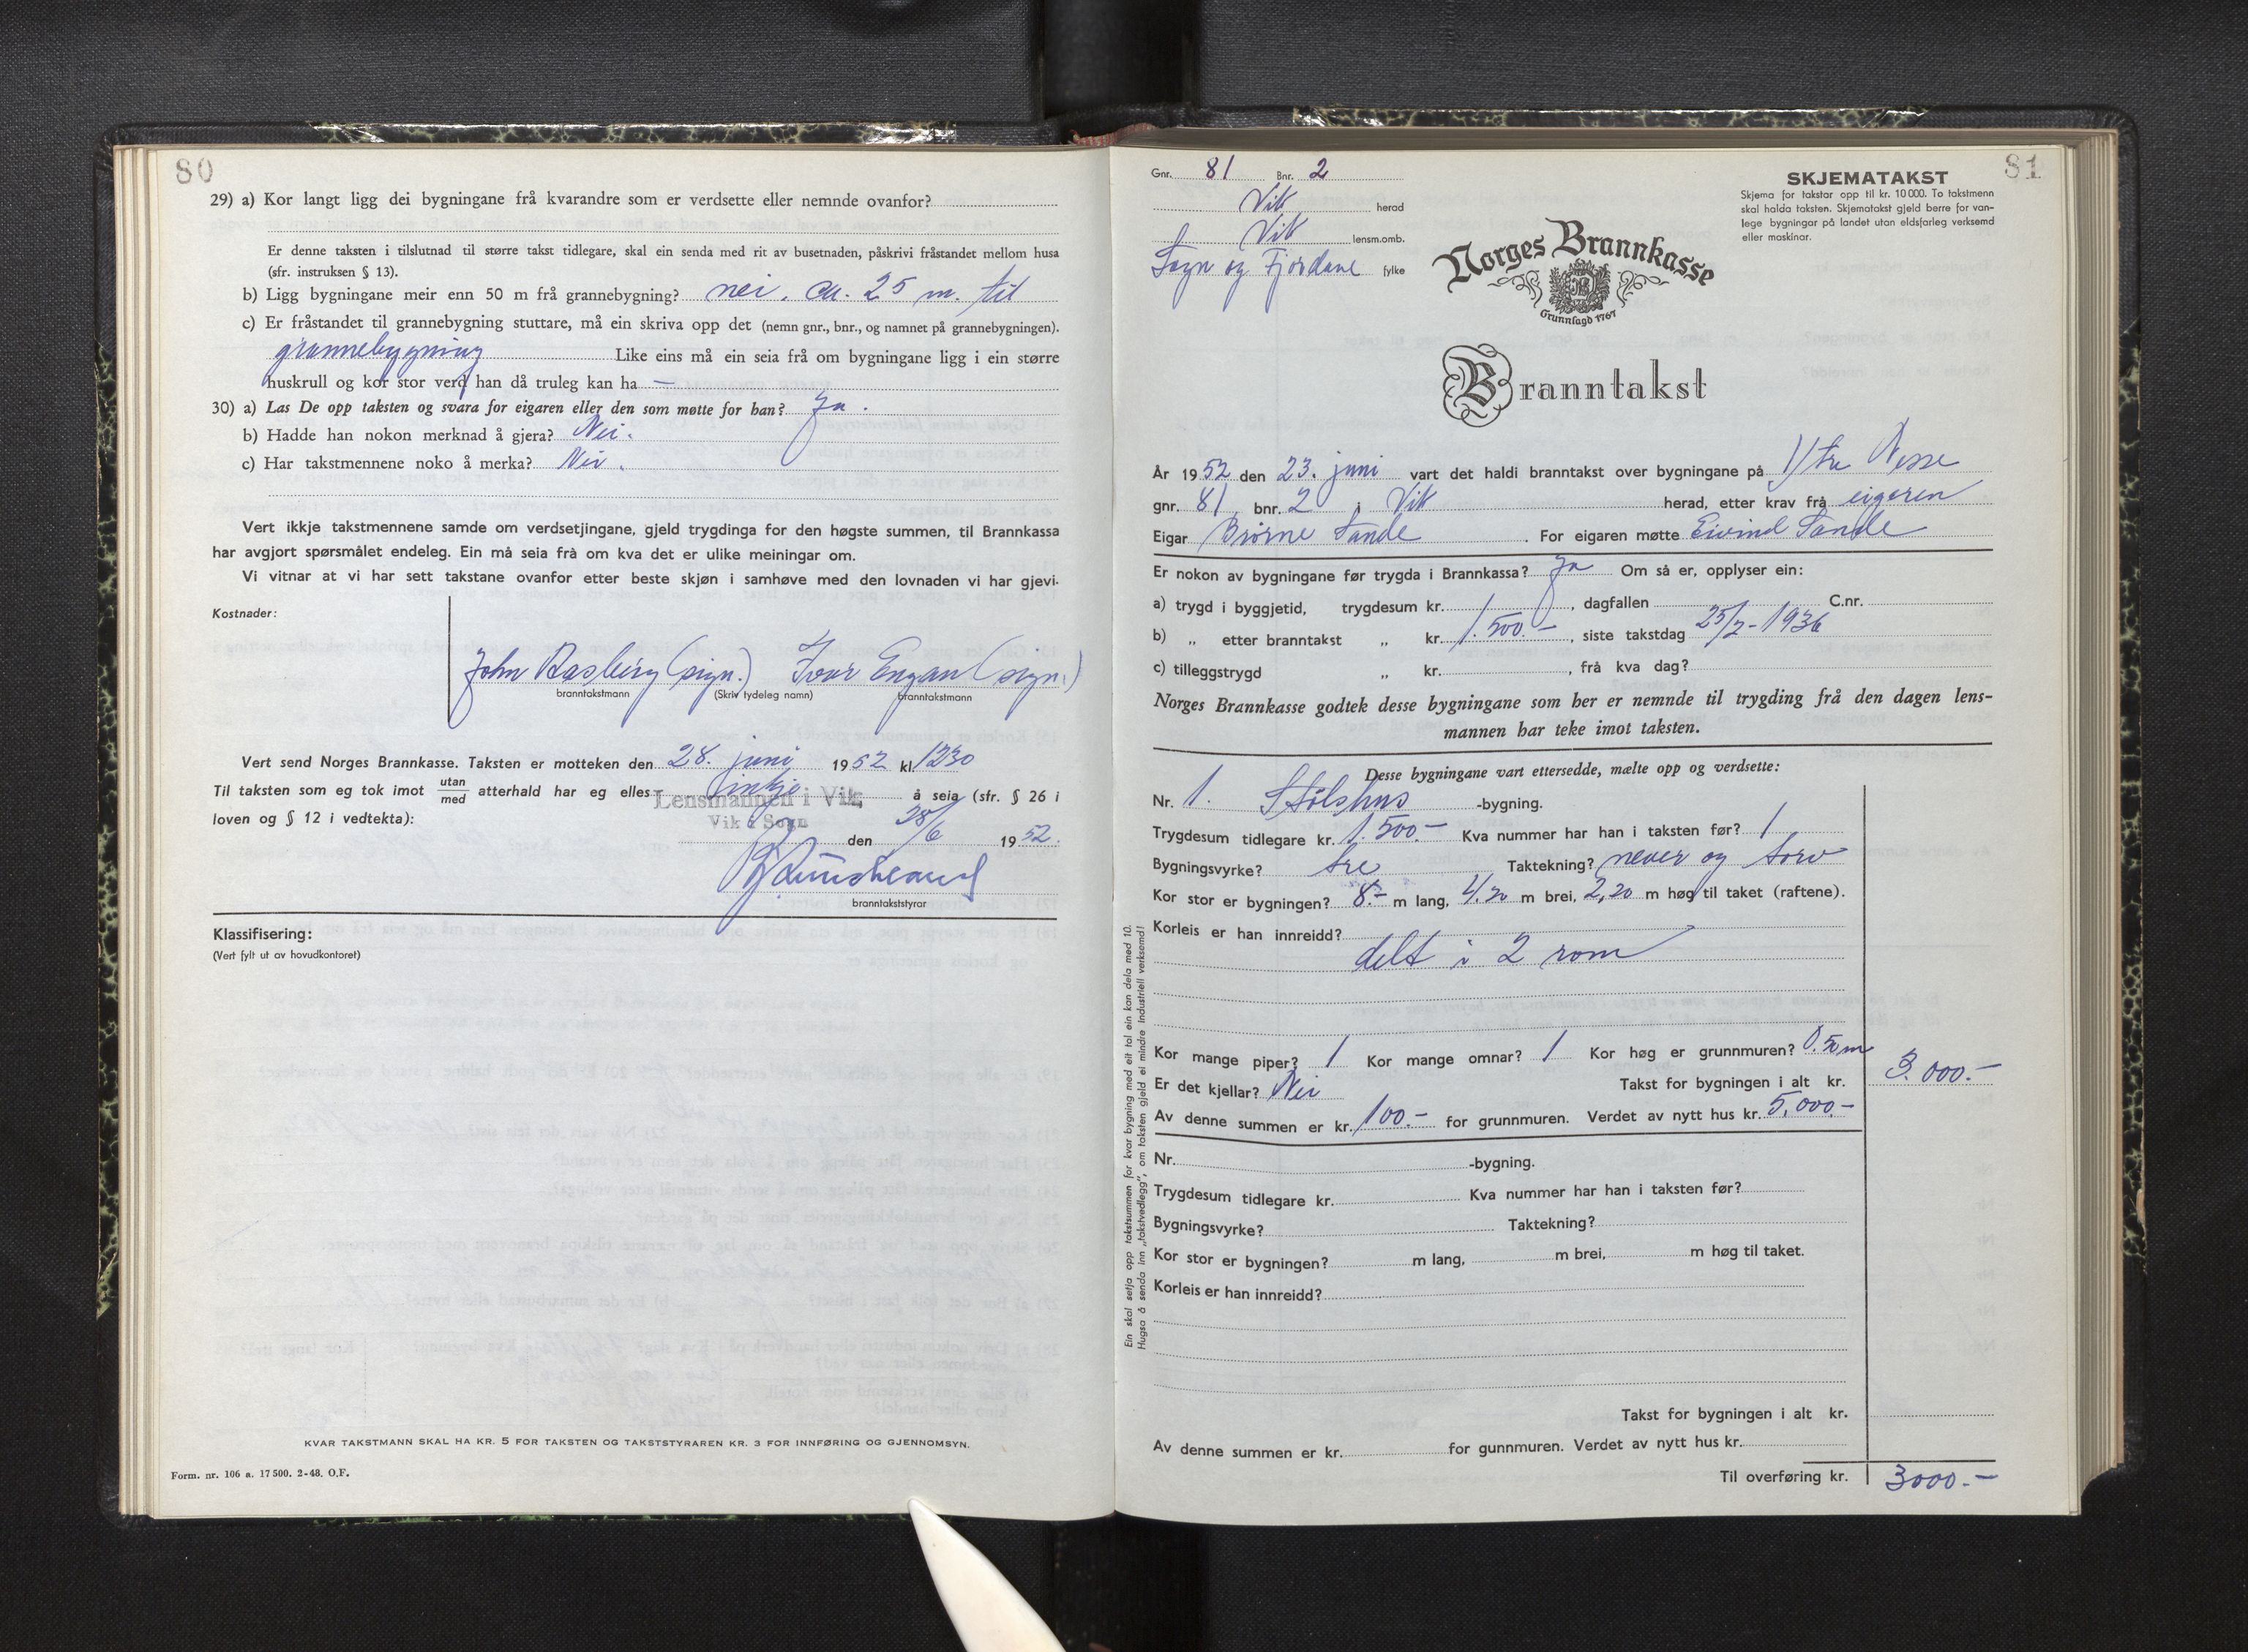 80
29) a) Kor langt ligg dei bygningane frå kvarandre som er verdsette eller nemnde ovanfor?
Er denne taksten i tilslutnad til større takst tidlegare, skal ein senda med rit av busetnaden, påskrivi fråstandet mellom husa
(sfr. instruksen § 13).
b) Ligg bygningane meir enn 50 m frå grannebygning? nei. ca. 25 m. til
c) Er fråstandet til grannebygning stuttare, må ein skriva opp det (nemn gnr., bnr., og namnet på grannebygningen).
grannebygning Like eins må ein seia frå om bygningane ligg i ein større
huskrull og kor stor verd han då truleg kan ha —
30) a) Las De opp taksten og svara for eigaren eller den som møtte for han? Ja.
b) Hadde han nokon merknad å gjera? Nei.
c) Har takstmennene noko å merka? Nei.
Vert ikkje takstmennene samde om verdsetjingane, gjeld trygdinga for den høgste summen, til Brannkassa
har avgjort spørsmålet endeleg. Ein må seia frå om kva det er ulike meiningar om.
Vi vitnar at vi har sett takstane ovanfor etter beste skjøn i samhøve med den lovnaden vi har gjevi.
Kostnader:
John Aasberg (sign.) Ivar Engan (sign.)
branntakstmann (Skriv tydeleg namn) branntakstmann
Vert send Norges Brannkasse. Taksten er motteken den 28. juni 1952 kl. 1230
Til taksten som eg tok imot utan/med atterhald har eg elles inkje å seia (sfr. § 26 i
Lensmannen i Vik
loven og § 12 i vedtekta):
Vik i Sogn
den 28/6 1952.
branntakststyrar
Klassifisering:
(Vert fylt ut av hovudkontoret)
KVAR TAKSTMANN SKAL HA KR. 5 FOR TAKSTEN OG TAKSTSTYRAREN KR. 3 FOR INNFØRING OG GJENNOMSYN.
Form. nr. 106 a. 17 500. 2-48. O.F.
81
Gnr. 81 Bnr. 2
Vik herad
Vik lensm.omb.
Sogn og Fjordane fylke
Norges Brannkasse
Grunnlagd 1767
SKJEMATAKST
Skjema for takstar opp til kr. 10 000. To takstmenn
skal halda taksten. Skjematakst gjeld berre for van-
lege bygningar på landet utan eldsfarleg verksemd
eller maskinar.
Branntakst
År 1952 den 23. juni vart det haldi branntakst over bygningane på Ytre Nesse
gnr. 81 bnr. 2 i Vik herad, etter krav frå eigaren
Eigar Brørne Sande. For eigaren møtte Eivind Sande
Er nokon av bygningane før trygda i Brannkassa? Ja Om så er, opplyser ein:
a) trygd i byggjetid, trygdesum kr. , dagfallen C.nr.
b) „ etter branntakst „ kr. 1.500.—, siste takstdag 25/2-1936
c) tilleggstrygd „ kr. , frå kva dag?
Norges Brannkasse godtek desse bygningane som her er nemnde til trygding frå den dagen lens-
mannen har teke imot taksten.
Desse bygningane vart ettersedde, mælte opp og verdsette:
Nr. 1. Stølshus -bygning.
Trygdesum tidlegare kr. 1.500.— Kva nummer har han i taksten før? 1
Bygningsvyrke? tre Taktekning? never og torv
Kor stor er bygningen? 8.- m lang, 4.20 m brei, 2,20 m høg til taket (raftene).
Korleis er han innreidd?
delt i 2 rom
Kor mange piper? 1 Kor mange omnar? 1 Kor høg er grunnmuren? 0.50 m
Er det kjellar? Nei Takst for bygningen i alt kr. 3.000.—
Av denne summen er kr. 100.— for grunnmuren. Verdet av nytt hus kr. 5.000.—
Nr. -bygning.
Trygdesum tidlegare kr. Kva nummer har han i taksten før?
Bygningsvyrke? Taktekning?
Kor stor er bygningen? m lang, m brei, m høg til taket.
Korleis er han innreidd?
Takst for bygningen i alt kr.
Av denne summen er kr. for gunnmuren. Verdet av nytt hus kr.
Til overføring kr. 3000.—
Ein skal setja opp takstsummen for kvar bygning med eit tal ein kan dela med 10.
Hugsa å senda inn „takstvedlegg”, om taksten gjeld ei mindre industriell verksemd!